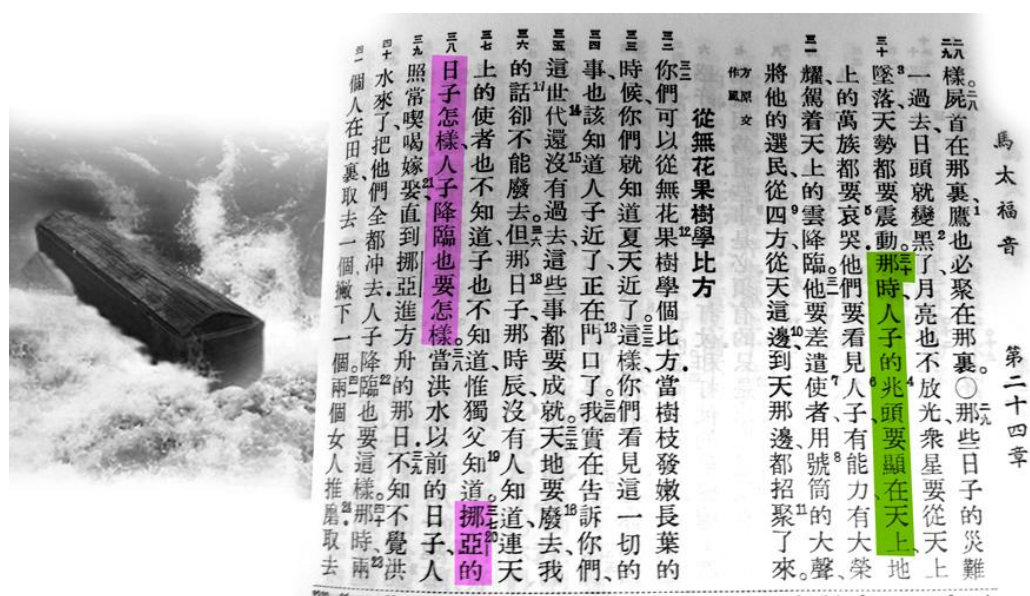 馬太福音 第二十四章
二八 二九 樣。二八屍首在那裏、鷹1也必聚在那裏。〇二九那些日子的災難
一過去、日頭就變黑2了、月亮也不放光、衆星要從天上
三十 墜3落、天勢都要震動。三十那時、人子的兆4頭要顯在天上、地
上的萬族都要哀5哭．他們要看見人子6、有能力、有大榮
三一 耀、駕着天上的雲降臨。三一他要差遣使者7、用號8筒的大聲、
將他的選民、從四9方、從天這邊10、到天那邊、都招11聚了來。
方原文作風
從無花果樹學比方
三二 三二你們可以從無花果12樹學個比方．當樹枝發嫩長葉的
三三 時候、你們就知道夏天近了。三三這樣、你們看見這一切的
三四 事、也該知道人子近了、正在門13口了。三四我實在告訴你們、
三五 這14世代還沒有15過去、這些事都要成就。三五天地要廢16去、我
三六 的話17卻不能廢去。三六但那18日子、那時辰、沒有人知道、連天
三七 上的使者也不知道、子也不知道、惟獨父19知道。三七挪20亞的
三八 日子怎樣、人子降臨也要怎樣。三八當洪水以前的日子、人
三九 照常喫喝嫁娶21、直到挪亞進方舟的那日．三九不知不覺洪
四十 水來了、把他們全都冲去．人子降臨22也要這樣。四十那時、兩23
四一 個人在田裏、取去一個、撇下一個。四一兩個女人推磨24．取去